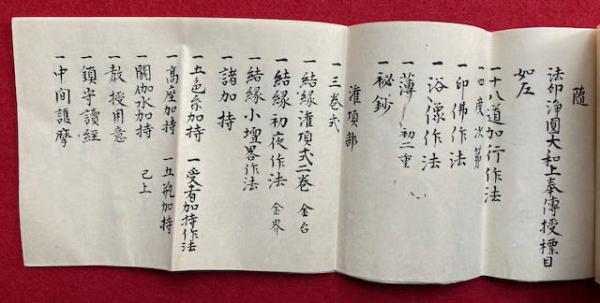 隨
法印淨圓大和上奉傳授標目
如左
一十八道加行作法
一四度次第
一印佛作法
一浴像作法
一薄初二重
一祕鈔
一三巻式
灌頂部
一結縁灌頂式二巻 金台
一結縁初夜作法 金界
一結縁小壇畧作法
一諸加持
一五色糸加持 一受者加持作法
一高座加持 一五瓶加持
一閼伽水加持 已上
一教授用意
一鎮守讀經
一中间護摩